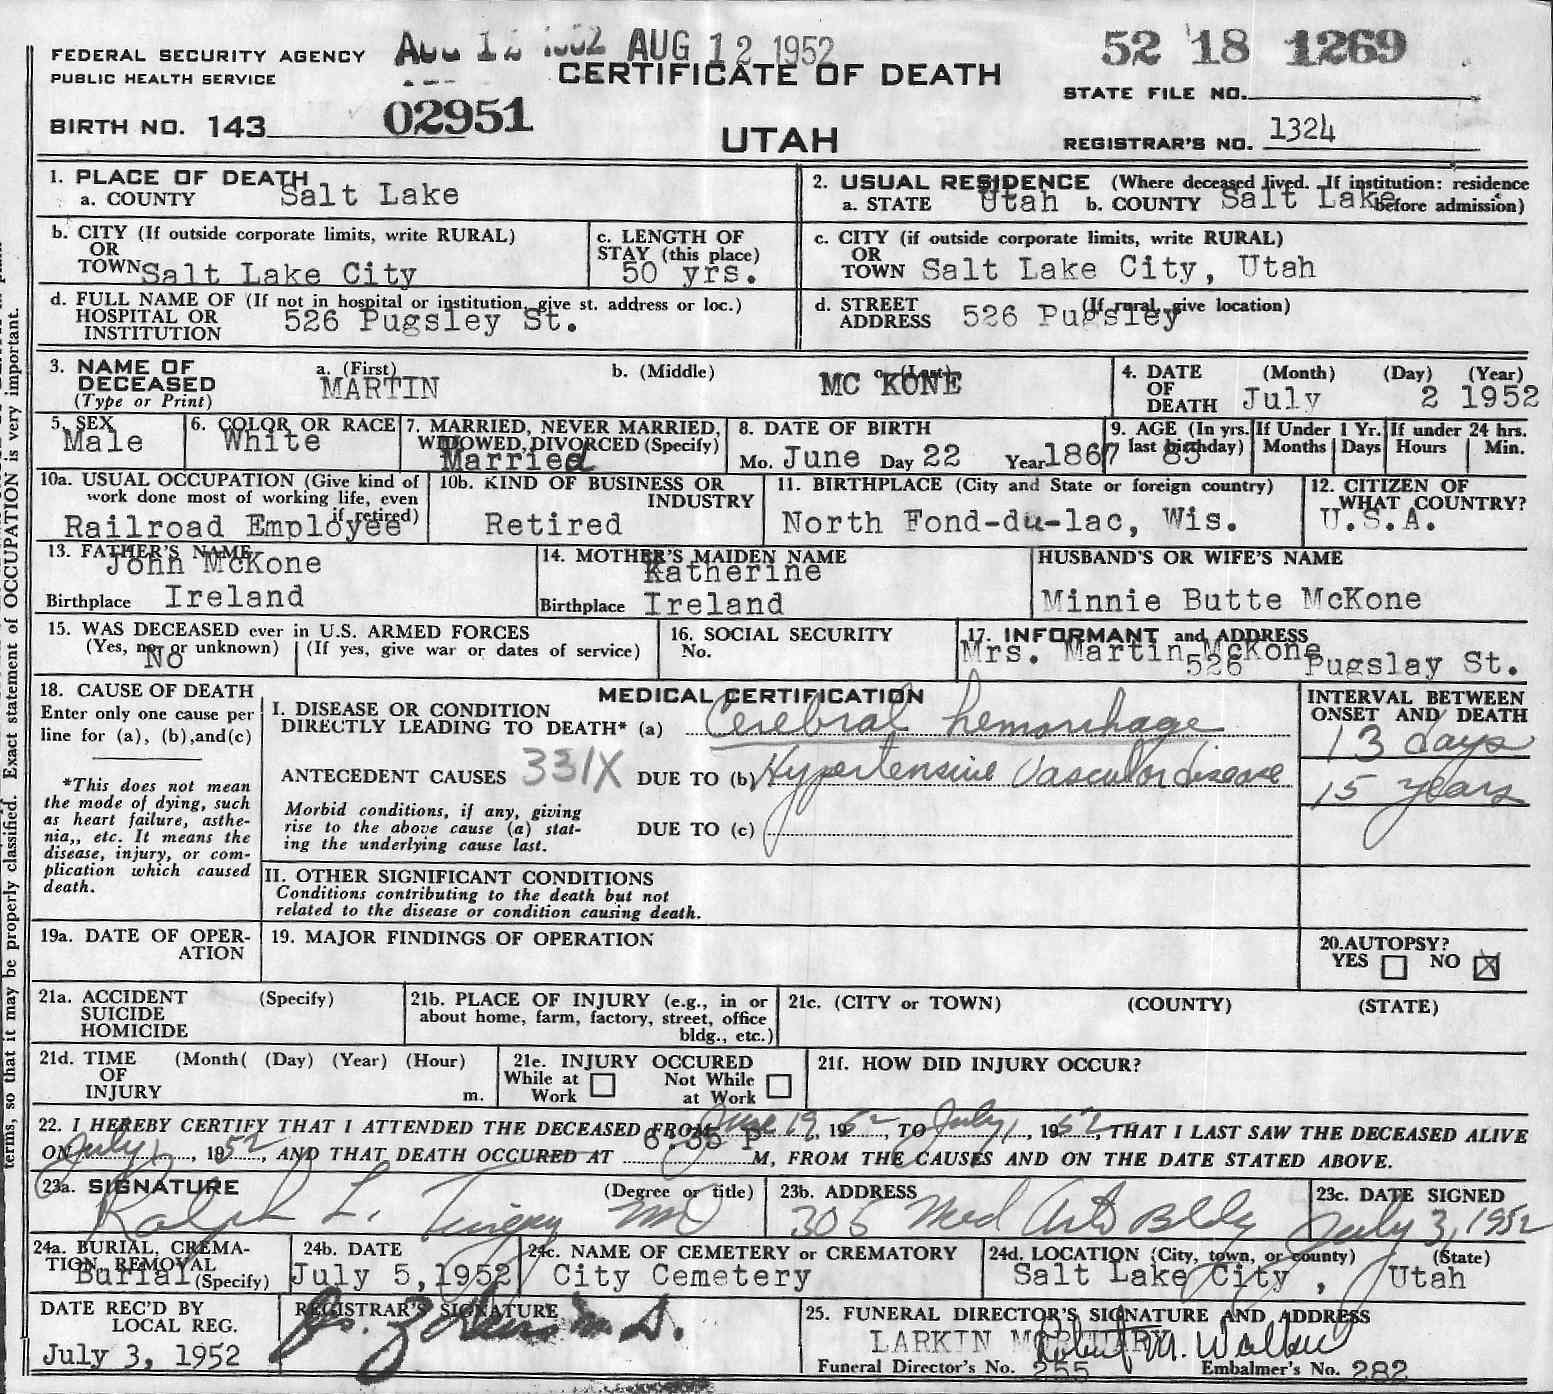 AUG 12 1952 AUG 12 1952
52 18 1269
FEDERAL SECURITY AGENCY
PUBLIC HEALTH SERVICE
CERTIFICATE OF DEATH
STATE FILE NO.
BIRTH NO. 143 02951
UTAH
REGISTRAR'S NO. 1324
1. PLACE OF DEATH
a. COUNTY Salt Lake
2. USUAL RESIDENCE (Where deceased lived. If institution: residence before admission)
a. STATE Utah b. COUNTY Salt Lake
b. CITY (If outside corporate limits, write RURAL)
OR
TOWN Salt Lake City
c. LENGTH OF
STAY (this place)
50 yrs.
c. CITY (if outside corporate limits, write RURAL)
OR
TOWN Salt Lake City, Utah
d. FULL NAME OF (If not in hospital or institution, give st. address or loc.)
HOSPITAL OR
INSTITUTION 526 Pugsley St.
d. STREET (If rural, give location)
ADDRESS 526 Pugsley
3. NAME OF
DECEASED
(Type or Print)
a. (First)
MARTIN
b. (Middle)
c. (Last)
MC KONE
4. DATE
OF
DEATH
(Month) (Day) (Year)
July 2 1952
5. SEX
Male
6. COLOR OR RACE
White
7. MARRIED, NEVER MARRIED,
WIDOWED, DIVORCED (Specify)
Married
8. DATE OF BIRTH
Mo. June Day 22 Year 1867
9. AGE (In yrs.
last birthday)
85
If Under 1 Yr.
Months Days
If under 24 hrs.
Hours Min.
10a. USUAL OCCUPATION (Give kind of
work done most of working life, even
if retired)
Railroad Employee
10b. KIND OF BUSINESS OR
INDUSTRY
Retired
11. BIRTHPLACE (City and State or foreign country)
North Fond-du-lac, Wis.
12. CITIZEN OF
WHAT COUNTRY?
U.S.A.
13. FATHER'S NAME
John McKone
Birthplace Ireland
14. MOTHER'S MAIDEN NAME
Katherine
Birthplace Ireland
HUSBAND'S OR WIFE'S NAME
Minnie Butte McKone
15. WAS DECEASED ever in U.S. ARMED FORCES
(Yes, no, or unknown) (If yes, give war or dates of service)
No
16. SOCIAL SECURITY
No.
17. INFORMANT and ADDRESS
Mrs. Martin McKone
526 Pugslay St.
18. CAUSE OF DEATH
Enter only one cause per
line for (a), (b), and (c)
*This does not mean
the mode of dying, such
as heart failure, asthe-
nia,, etc. It means the
disease, injury, or com-
plication which caused
death.
MEDICAL CERTIFICATION
I. DISEASE OR CONDITION
DIRECTLY LEADING TO DEATH* (a) Cerebral hemorrhage
ANTECEDENT CAUSES 331X DUE TO (b) Hypertensive Vascular disease
Morbid conditions, if any, giving
rise to the above cause (a) stat-
ing the underlying cause last.
DUE TO (c)
INTERVAL BETWEEN
ONSET AND DEATH
13 days
15 years
II. OTHER SIGNIFICANT CONDITIONS
Conditions contributing to the death but not
related to the disease or condition causing death.
19a. DATE OF OPER-
ATION
19. MAJOR FINDINGS OF OPERATION
20. AUTOPSY?
YES NO X
21a. ACCIDENT (Specify)
SUICIDE
HOMICIDE
21b. PLACE OF INJURY (e.g., in or
about home, farm, factory, street, office
bldg., etc.)
21c. (CITY or TOWN) (COUNTY) (STATE)
21d. TIME (Month( (Day) (Year) (Hour)
OF
INJURY m.
21e. INJURY OCCURED
While at Work
Not While at Work
21f. HOW DID INJURY OCCUR?
22. I HEREBY CERTIFY THAT I ATTENDED THE DECEASED FROM June 19, 1952, TO July 1, 1952, THAT I LAST SAW THE DECEASED ALIVE
ON July 1, 1952, AND THAT DEATH OCCURED AT 6:35 P M, FROM THE CAUSES AND ON THE DATE STATED ABOVE.
23a. SIGNATURE (Degree or title)
Ralph L. Tingey MD
23b. ADDRESS
305 Med Arts Bldg
23c. DATE SIGNED
July 3, 1952
24a. BURIAL, CREMA-
TION, REMOVAL
Burial (Specify)
24b. DATE
July 5, 1952
24c. NAME OF CEMETERY or CREMATORY
City Cemetery
24d. LOCATION (City, town, or county) (State)
Salt Lake City, Utah
DATE REC'D BY
LOCAL REG.
July 3, 1952
REGISTRAR'S SIGNATURE
25. FUNERAL DIRECTOR'S SIGNATURE AND ADDRESS
LARKIN MORTUARY
Robert M. Walker
Funeral Director's No. 255 Embalmer's No. 282
terms, so that it may be properly classified. Exact statement of OCCUPATION is very important.